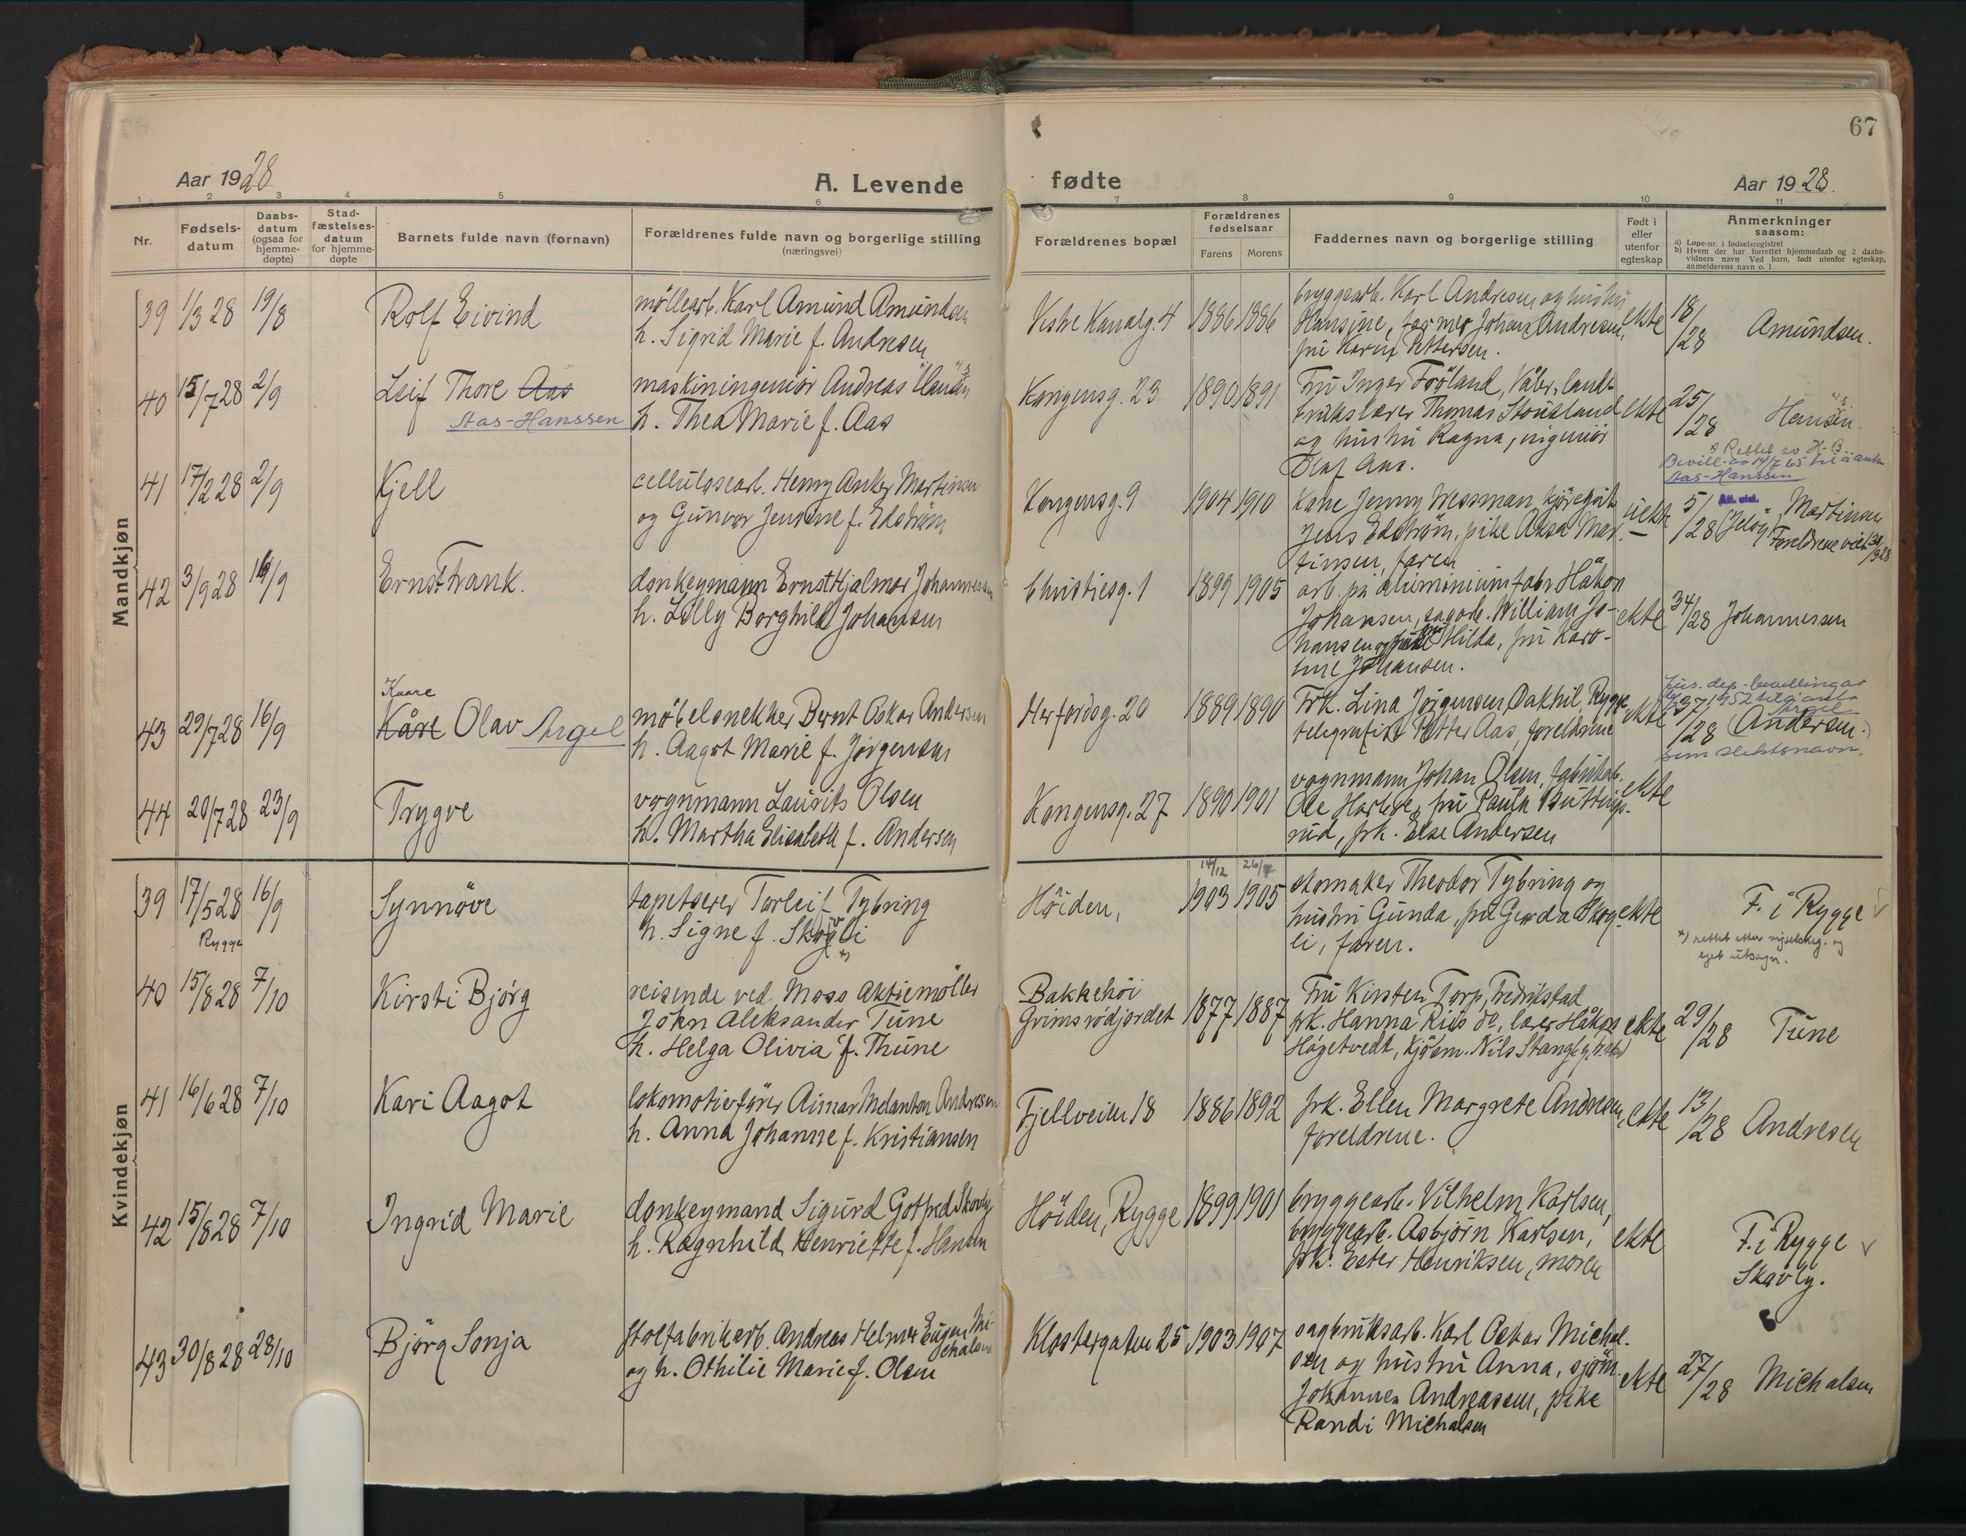 67
Aar 1928
A. Levende
fødte
Aar 1928.
1 2 3 4 5 6 7 8 9 10 11
Nr.
Fødsels-
datum
Daabs-
datum
(ogsaa for
hjemme-
døpte)
Stad-
fæstelses-
datum
for hjemme-
døpte
Barnets fulde navn (fornavn)
Forældrenes fulde navn og borgerlige stilling
(næringsvei)
Forældrenes bopæl
Forældrenes
fødselsaar
Farens
Morens
Faddernes navn og borgerlige stilling
Født i
eller
utenfor
egteskap
Anmerkninger
saasom:
a) Løpe-nr. i fødselsregistret
b) Hvem der har forrettet hjemmedaab og 2 daabs-
vidners navn Ved barn, født utenfor egteskap,
anmelderens navn o. l
Mandkjøn
39 1/3 28 19/8 Rolf Eivind
møllearb. Karl Amund Amundsen
h. Sigrid Marie f. Andresen
Vestre Kanalg. 4 1886 1886
bryggearb. Karl Andresen og hustru
Hansine, farmor Johan Andresen,
fru Karin Pettersen.
ekte 18/28 Amundsen.
40 15/7 28 2/9 Leif Thore Aas
Aas-Hanssen
maskiningeniør Andreas Hansen
h. Thea Marie f. Aas
Kongensg. 23 1890 1891
Fru Inger Froland, Våler, land-
brukslærer Thomas Stousland
og hustru Ragna, ingeniør
Olaf Aas.
ekte 25/28 Hansen.
Bevill. av 14/7 65 til å anta
Aas-Hanssen
41 17/2 28 2/9 Kjell
cellulosearb. Henry Anker Martinsen
og Gunvor Jensine f. Edstrøm
Kongensg. 9 1904 1910
Kone Jenny Wessman,
Jens Edstrøm, pike Aasa Mar-
tinsen, faren
uekte 5/28 (Jeløy) Martinsen
Foreldrene viet
42 3/9 28 16/9 Ernst Frank.
donkeymann Ernst Hjalmar Johannessen
h. Lilly Borghild Johansen
Christiesg. 1 1899 1905
arb. på aluminiumfabr Håkon
Johansen, sagarb. William Jo-
hansen og fru Hilda, fru Karo-
line Johansen.
ekte 34/28 Johannessen
43 29/7 28 16/9 Kaare
Kåre Olav Argel
møbelsnekker Bernt Oskar Andersen
h. Aagot Marie f. Jørgensen
Herfordsg. 20 1889 1890
Frk. Lina Jørgensen Dakhil, Rygge,
telegrafist Petter Aas, foreldrene
ekte 37/28 (Andersen.)
Jus. dep. bevilling av
1952 til å anta
Argel
som slektsnavn.
44 20/7 28 23/9 Trygve
vognmann Laurits Olsen
h. Martha Elisabeth f. Andersen
Kongensg. 27 1890 1901
vognmann Johan Olsen, fabrikarb.
Ole Harbve, fru Paula Buttings-
rud, frk. Else Andersen
ekte
Kvindekjøn
39 17/5 28 16/9 Synnøve
Rygge
tapetserer Torleif Tybring
h. Signe f. Skogli
Høiden, 14/12 1903 1905
skomaker Theodor Tybring og
hustru Gunda, fru Gerda Skog-
li, faren.
ekte F. i Rygge
*) rettet etter vigselsbg. og
eget utsagn.
40 15/8 28 7/10 Kirsti Bjørg
reisende ved Moss Aktiemøller
John Aleksander Tune
h. Helga Olivia f. Thune
Bakkehøi
Grimsrødjordet 1877 1887
Fru Kirsten Torp, Fredrikstad
frk. Hanna Riis do, lærer Håkon
Høgetvedt, kjøbm. Nils Stangeby,
ekte 29/28 Tune
41 16/6 28 7/10 Kari Aagot
lokomotivfører Aimar Melanton Andresen
h. Anna Johanne f. Kristiansen
Fjellveien 18 1886 1892
frk. Ellen Margrete Andresen,
foreldrene.
ekte 13/28 Andresen
42 15/8 28 7/10 Ingrid Marie
donkeymand Sigurd Gotfred Skovly
h. Ragnhild Henriette f. Hansen
Høiden, Rygge 1899 1901
bryggearb. Vilhelm Karlsen,
bryggearb. Asbjørn Karlsen,
frk. Ester Henriksen, moren
ekte F. i Rygge
Skovly.
43 30/8 28 28/10 Bjørg Sonja
stolfabrikarb. Andreas Helmer Eugen Mi-
chalsen
og h. Othilie Marie f. Olsen
Klostergaten 25 1903 1907
sagbruksarb. Karl Oskar Michal-
sen og hustru Anna, sjøm.
Johannes Andreassen, pike
Randi Michalsen
ekte 27/28 Michalsen